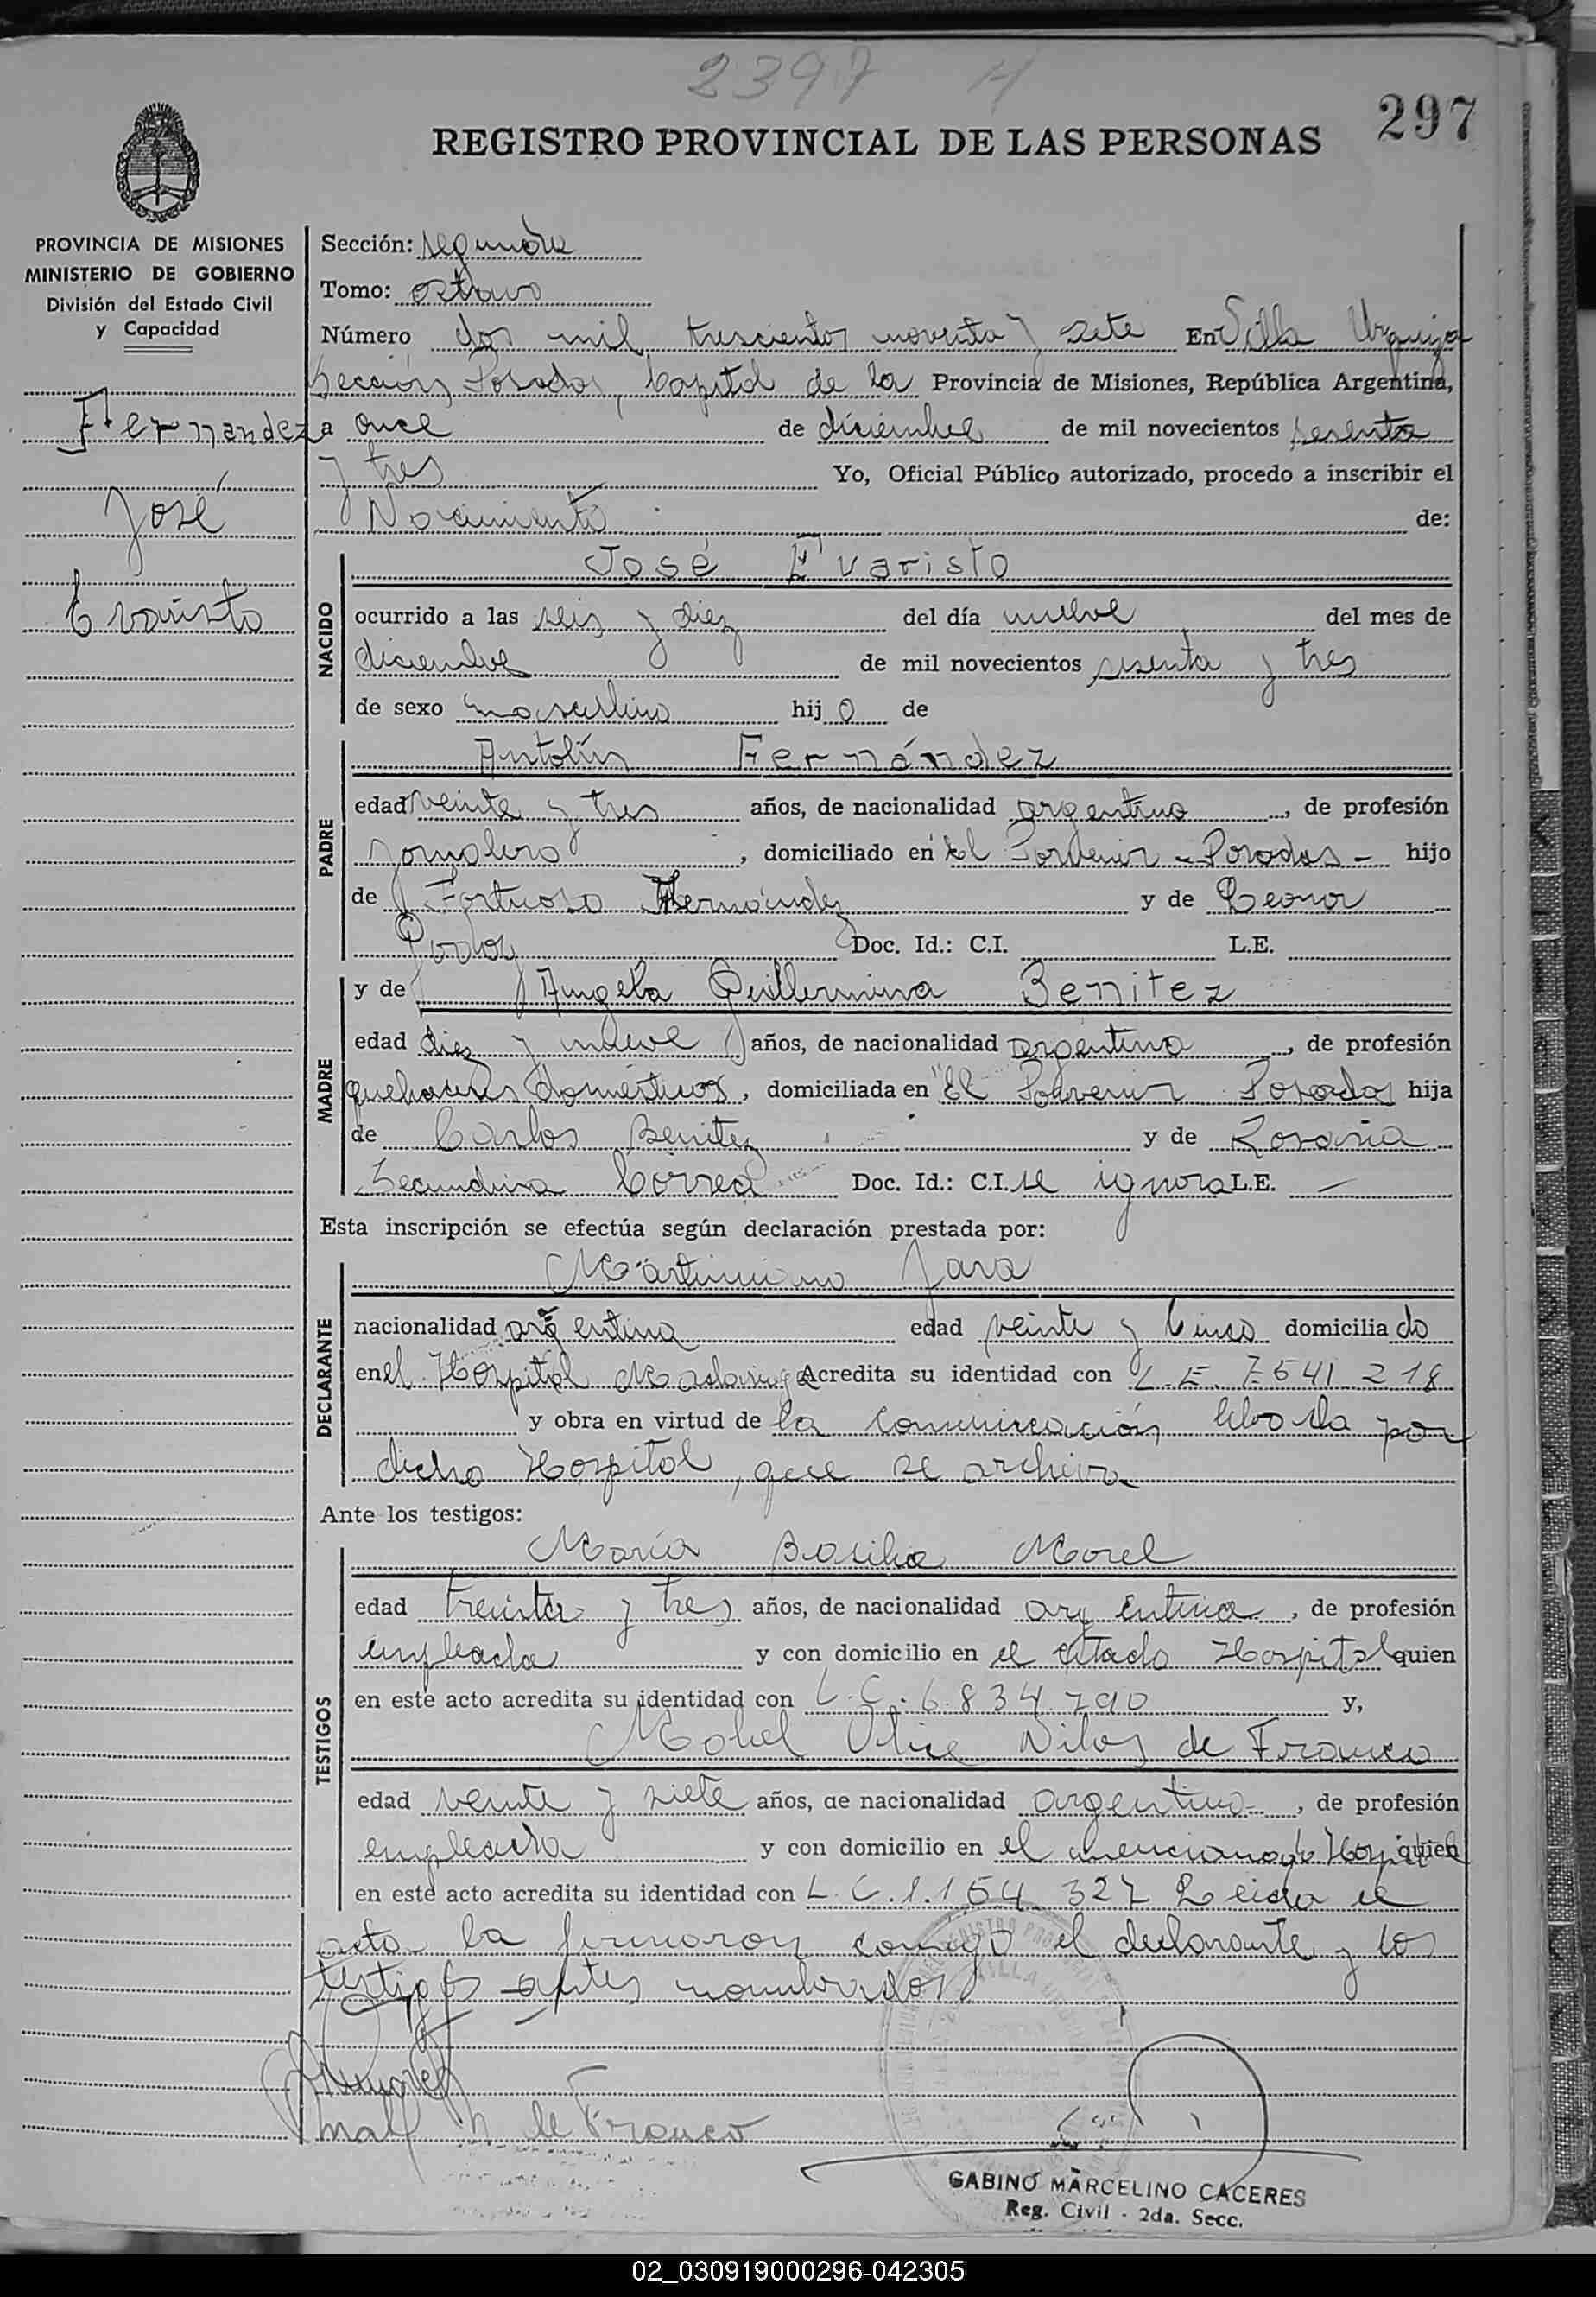 2397 H
297
REGISTRO PROVINCIAL DE LAS PERSONAS
PROVINCIA DE MISIONES
MINISTERIO DE GOBIERNO
División del Estado Civil
y Capacidad
Fernandez
José
Evaristo
Sección: segunda
Tomo: octavo
Número dos mil trescientos noventa y siete En Villa Urquiza
Sección, Posadas, Capital de la Provincia de Misiones, República Argentina,
a once de diciembre de mil novecientos sesenta
y tres Yo, Oficial Público autorizado, procedo a inscribir el
Nacimiento de:
NACIDO
José Evaristo
ocurrido a las seis y diez del día nueve del mes de
diciembre de mil novecientos sesenta y tres
de sexo masculino hijo de
PADRE
Antolín Fernández
edad veinte y tres años, de nacionalidad argentino, de profesión
jornalero, domiciliado en El Porvenir - Posadas - hijo
de Fortuoso Fernández y de Leonor
Doc. Id.: C.I. L.E.
MADRE
y de Angela Guillermina Benitez
edad diez y nueve años, de nacionalidad argentina, de profesión
quehaceres domésticos, domiciliada en "El Porvenir Posadas hija
de Carlos Benitez y de
Secundina Correa Doc. Id.: C.I. se ignora L.E. -
Esta inscripción se efectúa según declaración prestada por:
DECLARANTE
Martiniano Jara
nacionalidad argentina edad veinte y cinco domiciliado
en el Hospital Madariaga Acredita su identidad con L.E. 7541218
y obra en virtud de la comunicación librada por
dicho Hospital, que se archiva
Ante los testigos:
TESTIGOS
María Basilia Morel
edad treinta y tres años, de nacionalidad argentina, de profesión
empleada y con domicilio en el citado Hospital quien
en este acto acredita su identidad con L.C. 6.834.790 y,
de Franco
edad veinte y siete años, de nacionalidad argentina, de profesión
empleada y con domicilio en el mencionado Hospital quien
en este acto acredita su identidad con L.C. 1.154.327 Leida el
acta la firmaron conmigo el declarante y los
testigos antes nombrados
de Franco
GABINO MARCELINO CACERES
Reg. Civil - 2da. Secc.
02_030919000296-042305